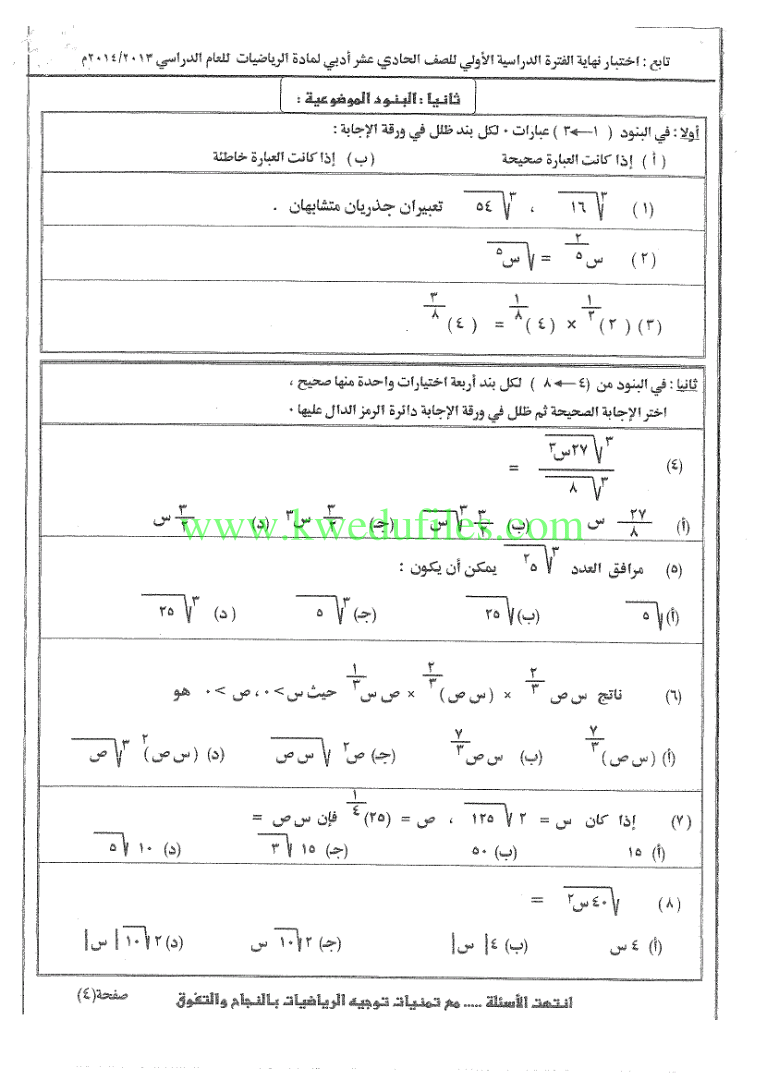 تابع : اختبار نهاية الفترة الدراسية الأولي للصف الحادي عشر أدبي لمادة الرياضيات للعام الدراسي ٢٠١٤/٢٠١٣م
ثانيا : البنود الموضوعية :
أولا : في البنود ( ١ ← ٣ ) عبارات ٠ لكل بند ظلل في ورقة الإجابة :
( أ ) إذا كانت العبارة صحيحة ( ب ) إذا كانت العبارة خاطئة
(١) ∛١٦ ، ∛٥٤ تعبيران جذريان متشابهان .
(٢) س^(٢/٥) = √س^٥
(٣) (٢)^(١/٢) × (٤)^(١/٨) = (٤)^(٣/٨)
ثانيا : في البنود من (٤ ← ٨ ) لكل بند أربعة اختيارات واحدة منها صحيح ،
اختر الإجابة الصحيحة ثم ظلل في ورقة الإجابة دائرة الرمز الدال عليها ٠
(٤) ∛٢٧س^٣ / ∛٨ =
(أ) ٢٧/٨ س (ب) ٣/٢ ∛س (جـ) ٣/٢ س^٣ (د) ٣/٢ س
www.kwedufiles.com
(٥) مرافق العدد ∛٥^٢ يمكن أن يكون :
(أ) √٥ (ب) √٢٥ (جـ) ∛٥ (د) ∛٢٥
(٦) ناتج س ص^(٢/٣) × (س ص)^(٢/٣) × ص س^(١/٣) حيث س > ٠ ، ص > ٠ هو
(أ) (س ص)^(٧/٣) (ب) س ص^(٧/٣) (جـ) ص^٢ √س ص (د) (س ص)^٢ ∛ص
(٧) إذا كان س = ٢√١٢٥ ، ص = (٢٥)^(١/٤) فإن س ص =
(أ) ١٥ (ب) ٥٠ (جـ) ١٥√٣ (د) ١٠√٥
(٨) √٤٠س^٢ =
(أ) ٤ س (ب) ٤ |س| (جـ) ٢√١٠ س (د) ٢√١٠ |س|
انتهت الأسئلة ..... مع تمنيات توجيه الرياضيات بالنجاح والتفوق صفحة(٤)